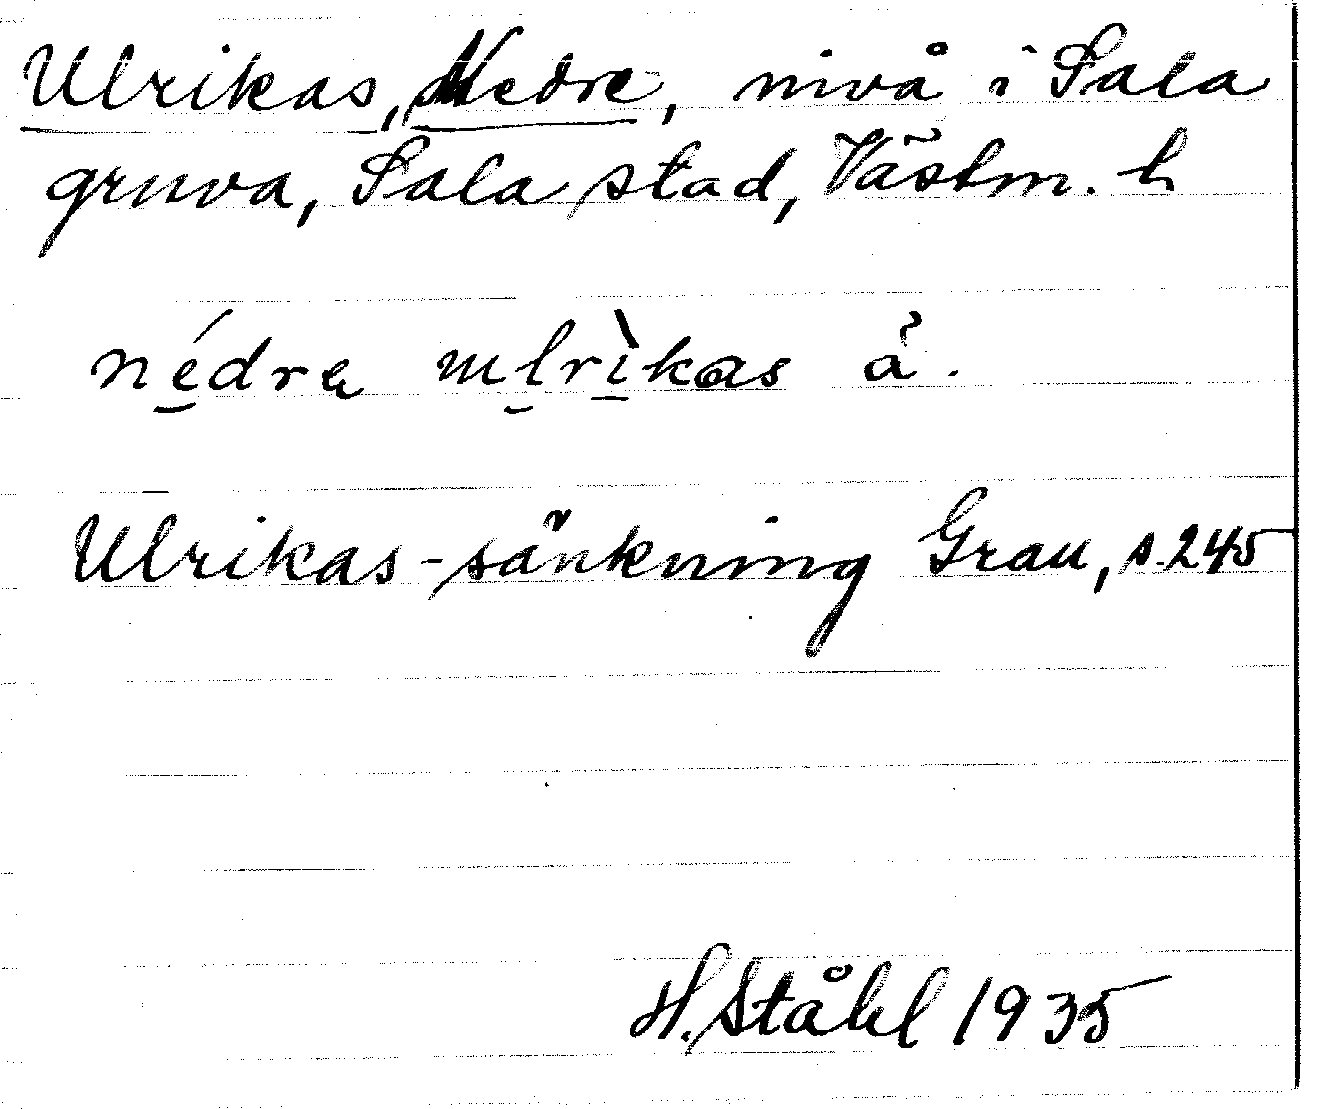 Ulrikas, Nedre, nivå i Sala
gruva, Sala stad, Västm. l
nédra ulrìkas å.
Ulrikas-sänkning Grau, s. 245
H. Ståhl 1935